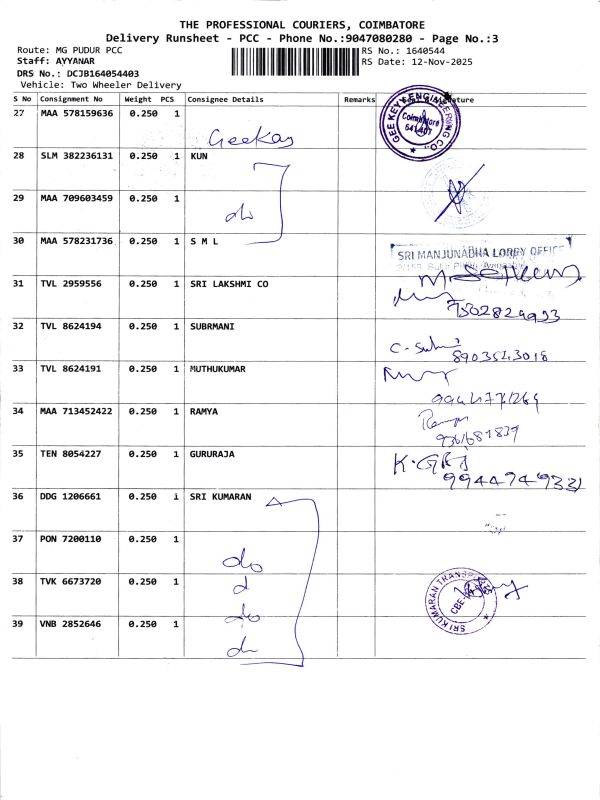 THE PROFESSIONAL COURIERS, COIMBATORE
Delivery Runsheet - PCC - Phone No.:9047080280 - Page No.:3
Route: MG PUDUR PCC
RS No.: 1640544
Staff: AYYANAR
RS Date: 12-Nov-2025
DRS No.: DCJB164054403
Vehicle: Two Wheeler Delivery
S No Consignment No Weight PCS Consignee Details Remarks
27 MAA 578159636 0.250 1
Geekay
GEE KEY ENGINEERING CO.
Coimbatore
28 SLM 382236131 0.250 1 KUN
29 MAA 709603459 0.250 1
do
30 MAA 578231736 0.250 1 S M L
SRI MANJUNADHA LORRY OFFICE
31 TVL 2959556 0.250 1 SRI LAKSHMI CO
7502824993
32 TVL 8624194 0.250 1 SUBRMANI
33 TVL 8624191 0.250 1 MUTHUKUMAR
34 MAA 713452422 0.250 1 RAMYA
35 TEN 8054227 0.250 1 GURURAJA
36 DDG 1206661 0.250 1 SRI KUMARAN
37 PON 7200110 0.250 1
do
38 TVK 6673720 0.250 1
do
39 VNB 2852646 0.250 1
do
SRI KUMARAN TRANSPORT
CBE